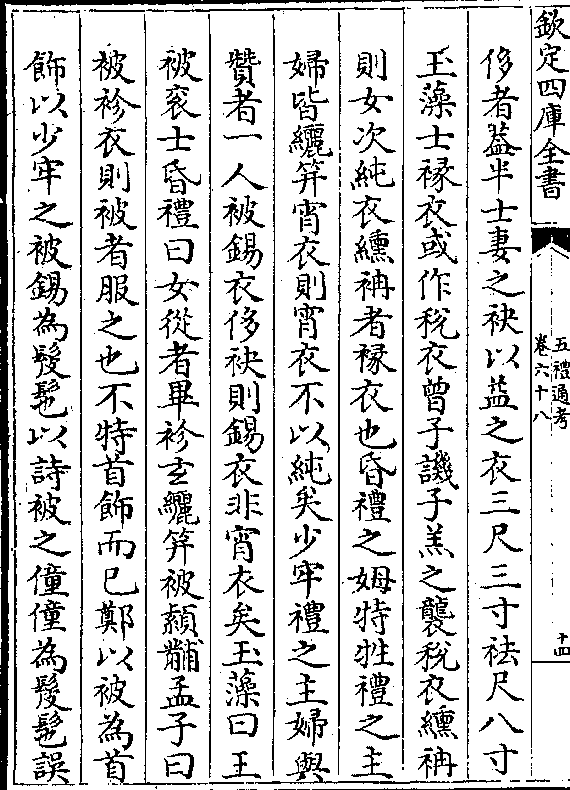 欽定四庫全書
五禮通考
卷六十八
十四
侈者葢半士妻之袂以益之衣三尺三寸袪尺八寸
玉藻士褖衣或作稅衣曾子譏子羔之襲稅衣纁袡
則女次純衣纁袡者褖衣也昏禮之姆特牲禮之主
婦皆纚笄宵衣則宵衣不以純矣少牢禮之主婦與
贊者一人被錫衣侈袂則錫衣非宵衣矣玉藻曰王
被衮士昏禮曰女從者畢袗玄纚笄被顈黼孟子曰
被袗衣則被者服之也不特首飾而已鄭以被為首
飾以少牢之被錫為髲髢以詩被之僮僮為髲髢誤